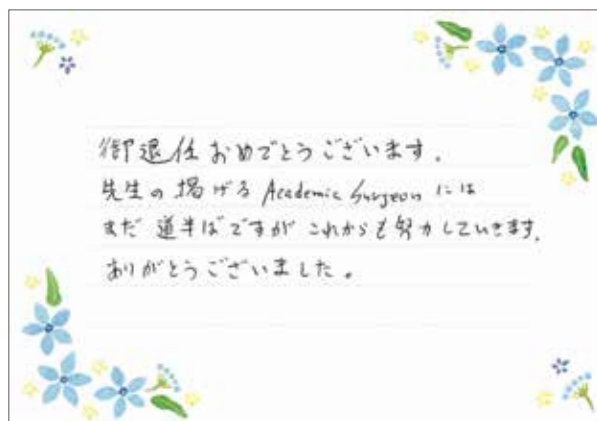 御退任おめでとうございます。
先生の掲げる Academic Surgeon には
まだ道半ばですがこれからも努力していきます。
ありがとうございました。